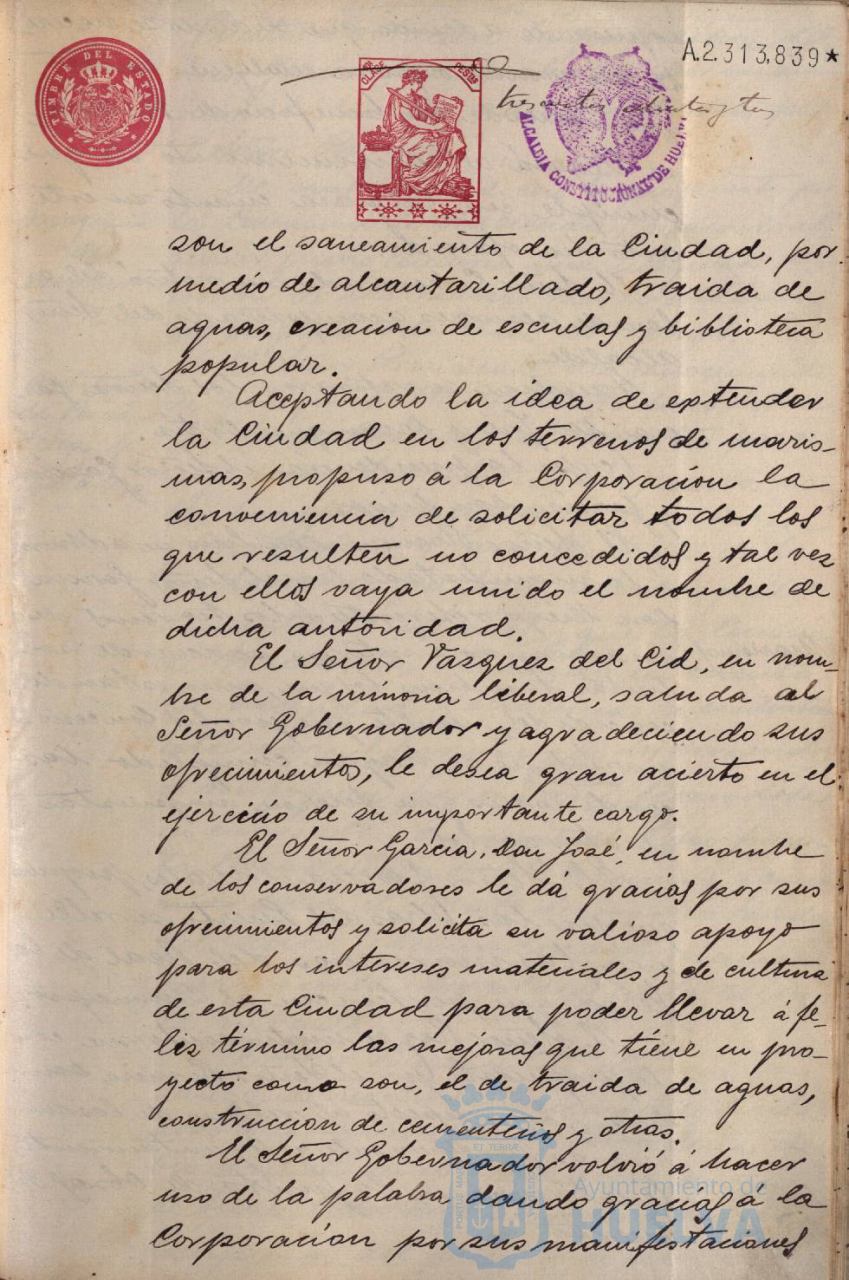 TIMBRE DEL ESTADO
CLASE
A.2.313,839★
ALCALDIA CONSTITUCIONAL DE HUELVA
son el saneamiento de la Ciudad, por
medio de alcantarillado, traida de
aguas, creacion de escuelas y biblioteca
popular.
Aceptando la idea de extender
la Ciudad en los terrenos de maris-
mas, propuso á la Corporación la
conveniencia de solicitar todos los
que resulten no concedidos y tal vez
con ellos vaya unido el nombre de
dicha autoridad.
El Señor Vazquez del Cid, en nom-
bre de la minoria liberal, saluda al
Señor Gobernador y agradeciendo sus
ofrecimientos, le desea gran acierto en el
ejercicio de su importante cargo.
El Señor García, Don José, en nombre
de los conservadores le dá gracias por sus
ofrecimientos y solicita su valioso apoyo
para los intereses materiales y de cultura
de esta Ciudad para poder llevar á fe-
liz término las mejoras que tiene en pro-
yecto como son, el de traida de aguas,
construccion de cementerios y otras.
El Señor Gobernador volvió á hacer
uso de la palabra dando gracias á la
Corporación por sus manifestaciones
Ayuntamiento de
HUELVA